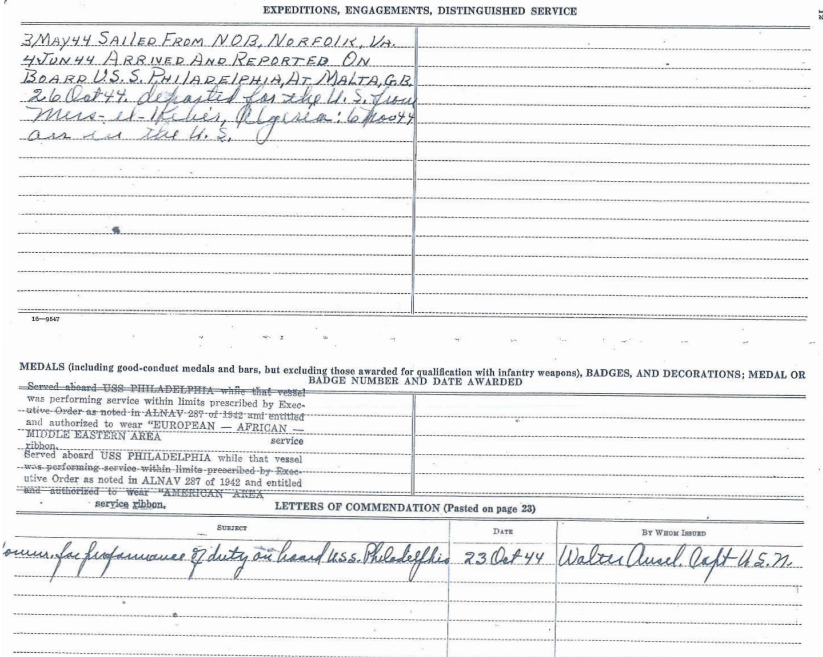 EXPEDITIONS, ENGAGEMENTS, DISTINGUISHED SERVICE
3 MAY 44 SAILED FROM N.O.B., NORFOLK, VA.
4 JUN 44 ARRIVED AND REPORTED ON
BOARD U.S.S. PHILADELPHIA, AT MALTA, G.B.
26 Oct 44. departed for the U.S. from
Mers-el-Kebir, Algeria: 6 Nov 44
arr in the U.S.
16—9547
MEDALS (including good-conduct medals and bars, but excluding those awarded for qualification with infantry weapons), BADGES, AND DECORATIONS; MEDAL OR
BADGE NUMBER AND DATE AWARDED
Served aboard USS PHILADELPHIA while that vessel
was performing service within limits prescribed by Exec-
utive Order as noted in ALNAV 287 of 1942 and entitled
and authorized to wear "EUROPEAN — AFRICAN —
MIDDLE EASTERN AREA service
ribbon.
Served aboard USS PHILADELPHIA while that vessel
was performing service within limits prescribed by Exec-
utive Order as noted in ALNAV 287 of 1942 and entitled
and authorized to wear "AMERICAN AREA
service ribbon.
LETTERS OF COMMENDATION (Pasted on page 23)
SUBJECT DATE BY WHOM ISSUED
for performance of duty on board U.S.S. Philadelphia 23 Oct 44 Walter Ansel. Capt U.S.N.